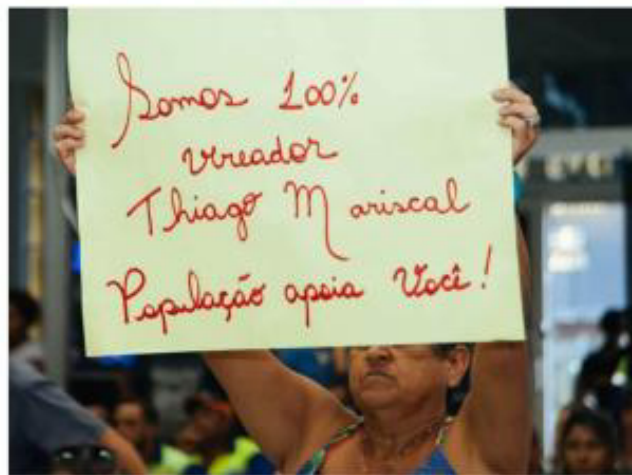 Somos 100%
vereador
Thiago Mariscal
População apoia Você!